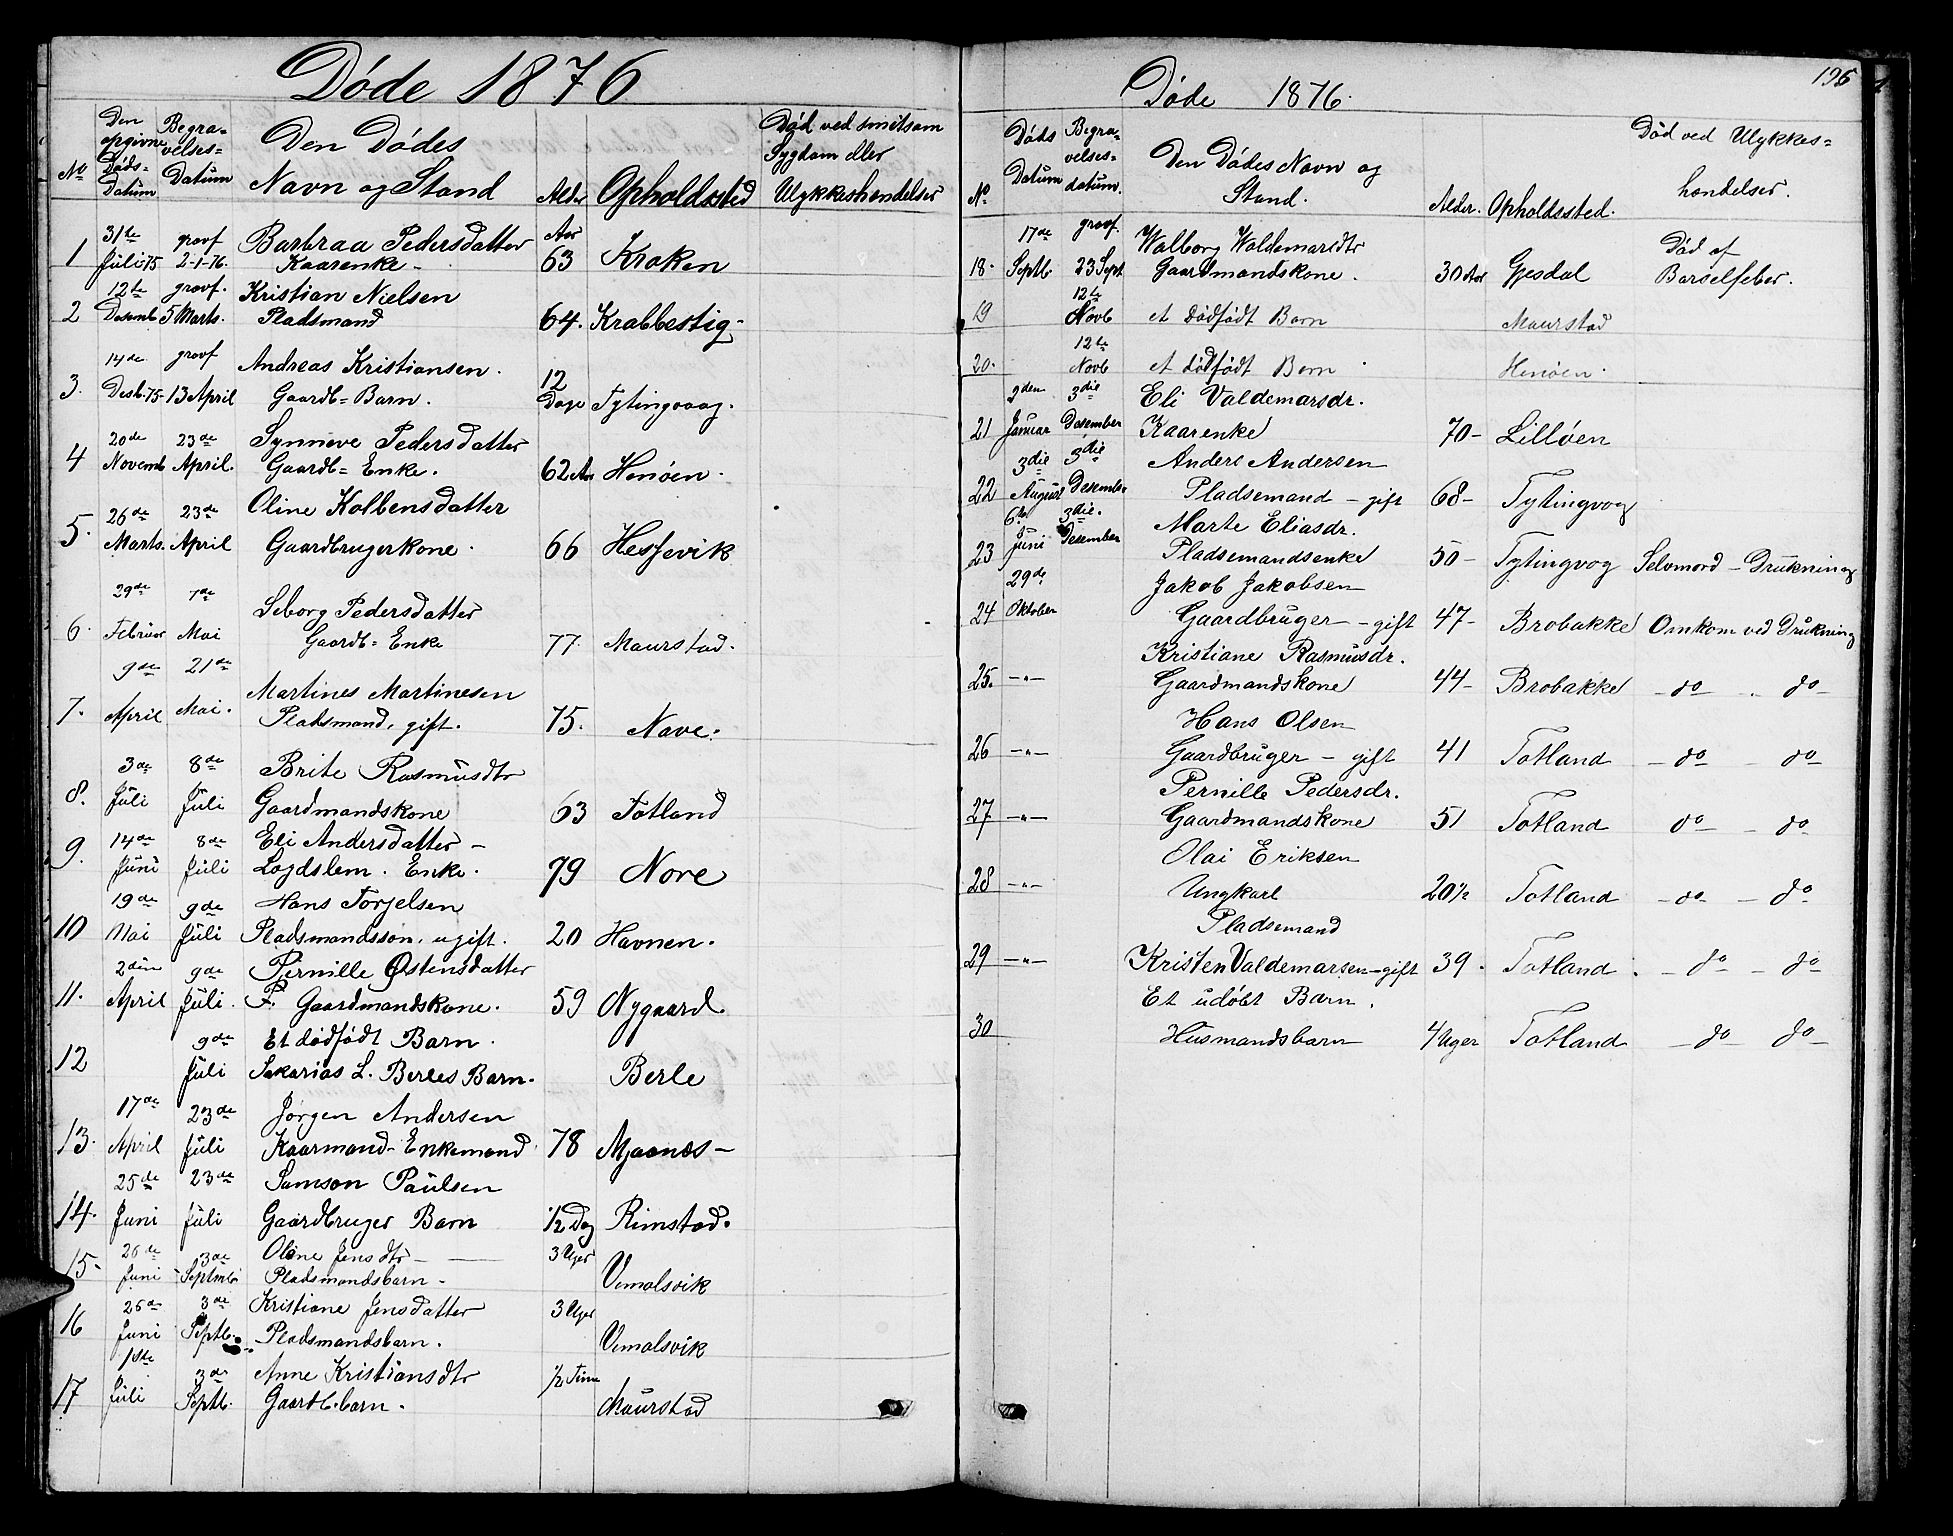 Døde 1876
No
Den opgivne Døds-Datum
Begravelses=Datum
Den Dødes Navn og Stand
Alder
Opholdssted
Død ved smitsom Sygdom eller Ulykkeshendelser
Aar
1 31te Juli 75 gravf 2-1-76. Barbraa Pedersdatter
Kaarenke - 63 Kraken
2 12te Desemb gravf. 5 Marts. Kristian Nielsen
Pladsmand 64. Krabbestig-
3. 14de Desb. 75- gravf 13 April Andreas Kristiansen.
Gaardb= Barn. 12 Dage Tytingvaag.
4 20de Novemb 23de April. Synneve Pedersdatter
Gaardb= Enke. 62 Aar Henøen.
5. 26de Marts. 23de April Oline Kolbensdatter
Gaardbrugerkone. 66 Hessevik
6. 29de Februar 7de Mai Seborg Pedersdatter
Gaardb= Enke 77. Maurstad.
7. 9de April 21de Mai. Martines Martinesen
Pladsmand, gift. 75. Nave.
8. 3de Juli 8de Juli Brite Rasmusdtr
Gaardmandskone 63 Totland
9. 14de Juni 8de Juli Eli Andersdatter -
Lægdslem. Enke. 79 Nore
10 19de Mai 9de Juli Hans Torjelsen
Pladsmandssøn, ugift. 20 Havnen.
11. 2den April 9de Juli. Pernille Østensdatter
F. Gaardmandskone. 59 Nygaard.
12 9de Juli Et dødfødt Barn.
Sakarias L. Berles Barn. Berle
13. 17de April 23de Juli Jørgen Andersen
Kaarmand- Enkemand 78 Mjaanes-
14. 25de Juni 23de Juli Samson Paulsen
Gaardbruger Barn 1/2 Dag Rimstad.
15- 26de Juni 3de Septmb Oline Jensdtr -
Pladsmandsbarn - 3 Uger Vemalsvik
16 26de Juni 3de Septb. Kristiane Jensdatter
Pladsmandsbarn. 3 Uger Vemalsvik
17 1ste Juli 3de Septb. Anne Kristiansdtr
Gaardb. barn. 1/2 Time Maurstad
Døde 1876.
196
No
Døds Datum
Begravelses=datum.
Den Dødes Navn og Stand.
Alder.
Opholdssted.
Død ved Ulykkes=hændelser.
18- 17de Septb gravf. 23 Sept Walborg Waldemarsdtr
Gaardmandskone. 30 Aar Gjesdal Død af Barselfeber.
19 12te Novb et dødfødt Barn Maurstad
20. 12te Novb et dødfødt Barn Henøen.
21 2den Januar 3die Desember Eli Valdemarsdr.
Kaarenke 70- Lilløen
22 3die August 3die Desember Anders Andersen
Pladsemand - gift 68- Tytingvog
23 6te Juni 3die. Desember Marte Eliasdr.
Pladsemandsenke 50- Tytingvog Selvmord - Drukning
24 29de Oktober Jakob Jakobsen
Gaardbruger - gift 47- Brobakke Omkom ved Drukning
25. -"- Kristiane Rasmusdr.
Gaardmandskone 44- Brobakke - do - . do -
26 -"- Hans Olsen
Gaardbruger - gift 41 Totland - do - do
27 -"- Pernille Pedersdr.
Gaardmandskone 51 Totland do - do
28 -"- Olai Eriksen
Ungkarl 20 1/2 Totland - do - do
29 -"- Pladsemand
Kristen Valdemarsen - gift 39. Totland. - do - do
30 Et udøbt Barn.
Husmandsbarn 4 Uger Totland - do do -